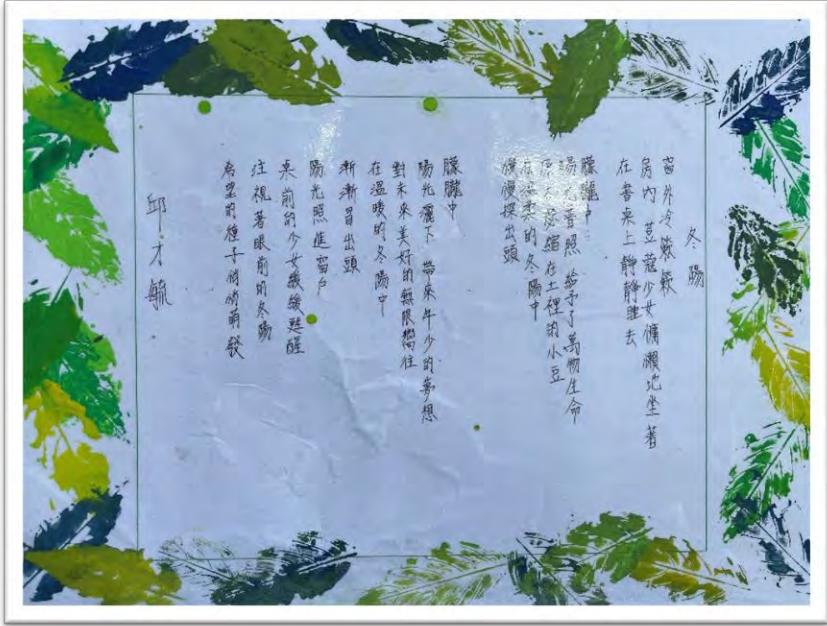 冬陽
窗外冷簌簌
房內 荳蔻少女慵懶地坐著
在書桌上靜靜睡去
朦朧中
陽光普照 給予了萬物生命
原本萎縮在土裡的小豆
在溫柔的冬陽中
慢慢探出頭
朦朧中
陽光灑下 帶來年少的夢想
對未來美好的無限嚮往
在溫暖的冬陽中
漸漸冒出頭
陽光照進窗戶
桌前的少女緩緩甦醒
注視著眼前的冬陽
希望的種子悄悄萌發
邱才毓